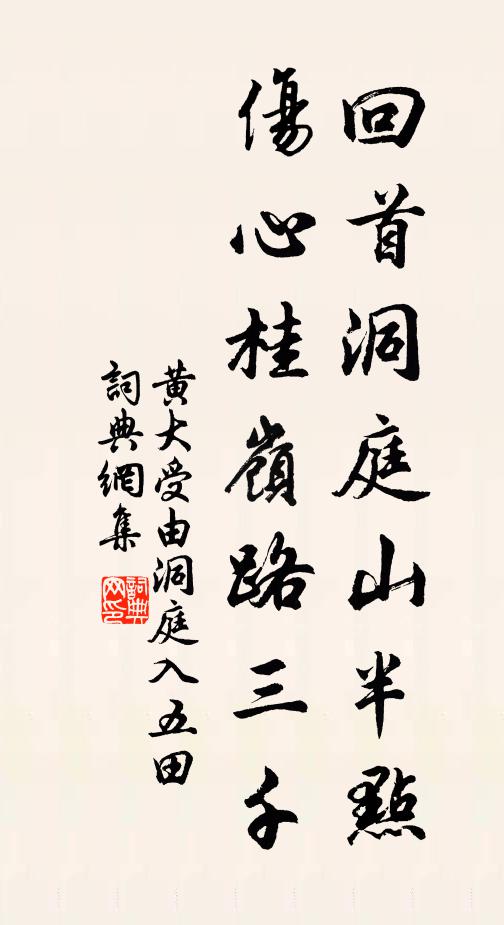 回首洞庭山半點
傷心桂嶺路三千
黃大受由洞庭入五田
詞典網集
詞典網印